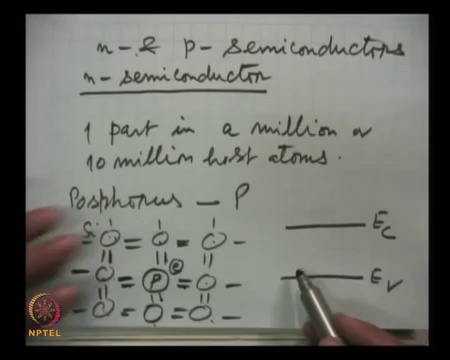 n- & p- semiconductors
n- semiconductor
1 part in a million or
10 million host atoms.
Posphorus — P
Si
E_C
P e
E_V
NPTEL